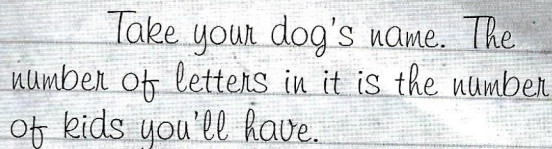 Take your dog's name. The
number of letters in it is the number
of kids you'll have.